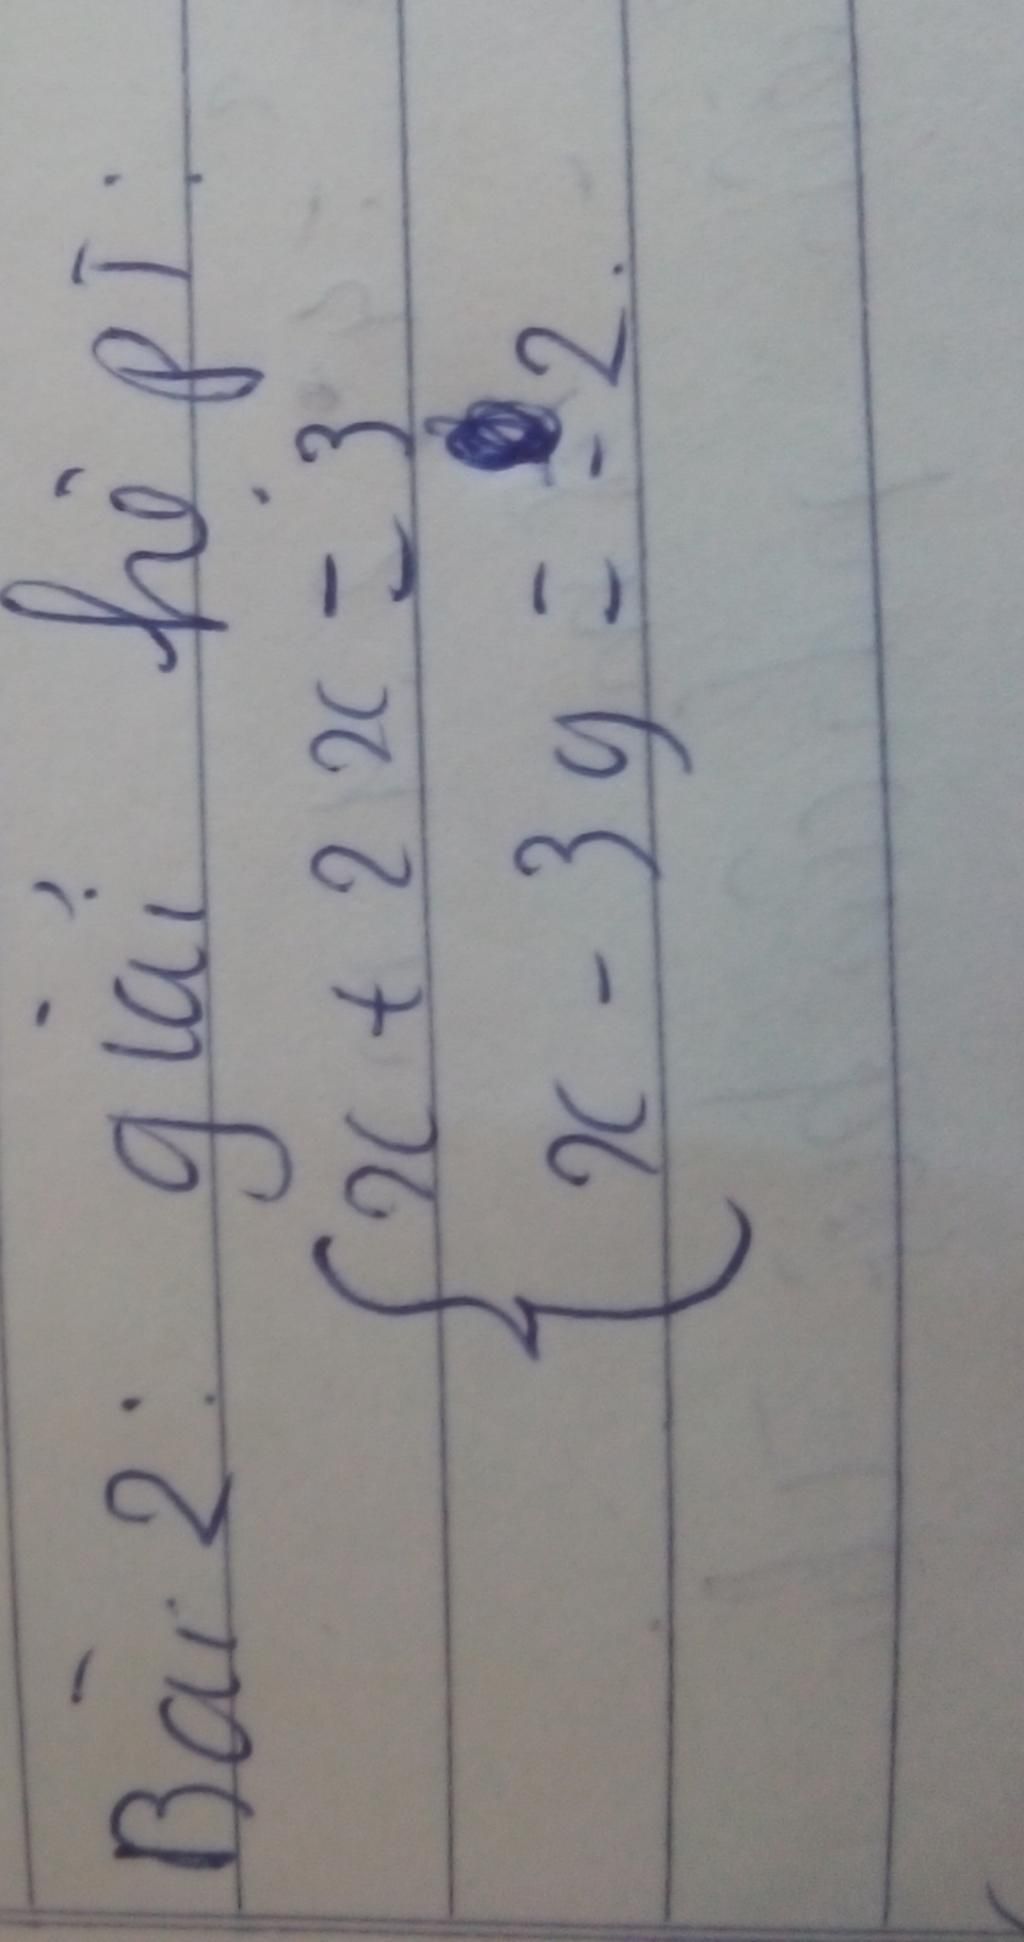 Bài 2: giải hệ PT:
{ x + 2x = 3
x - 3y = -2.